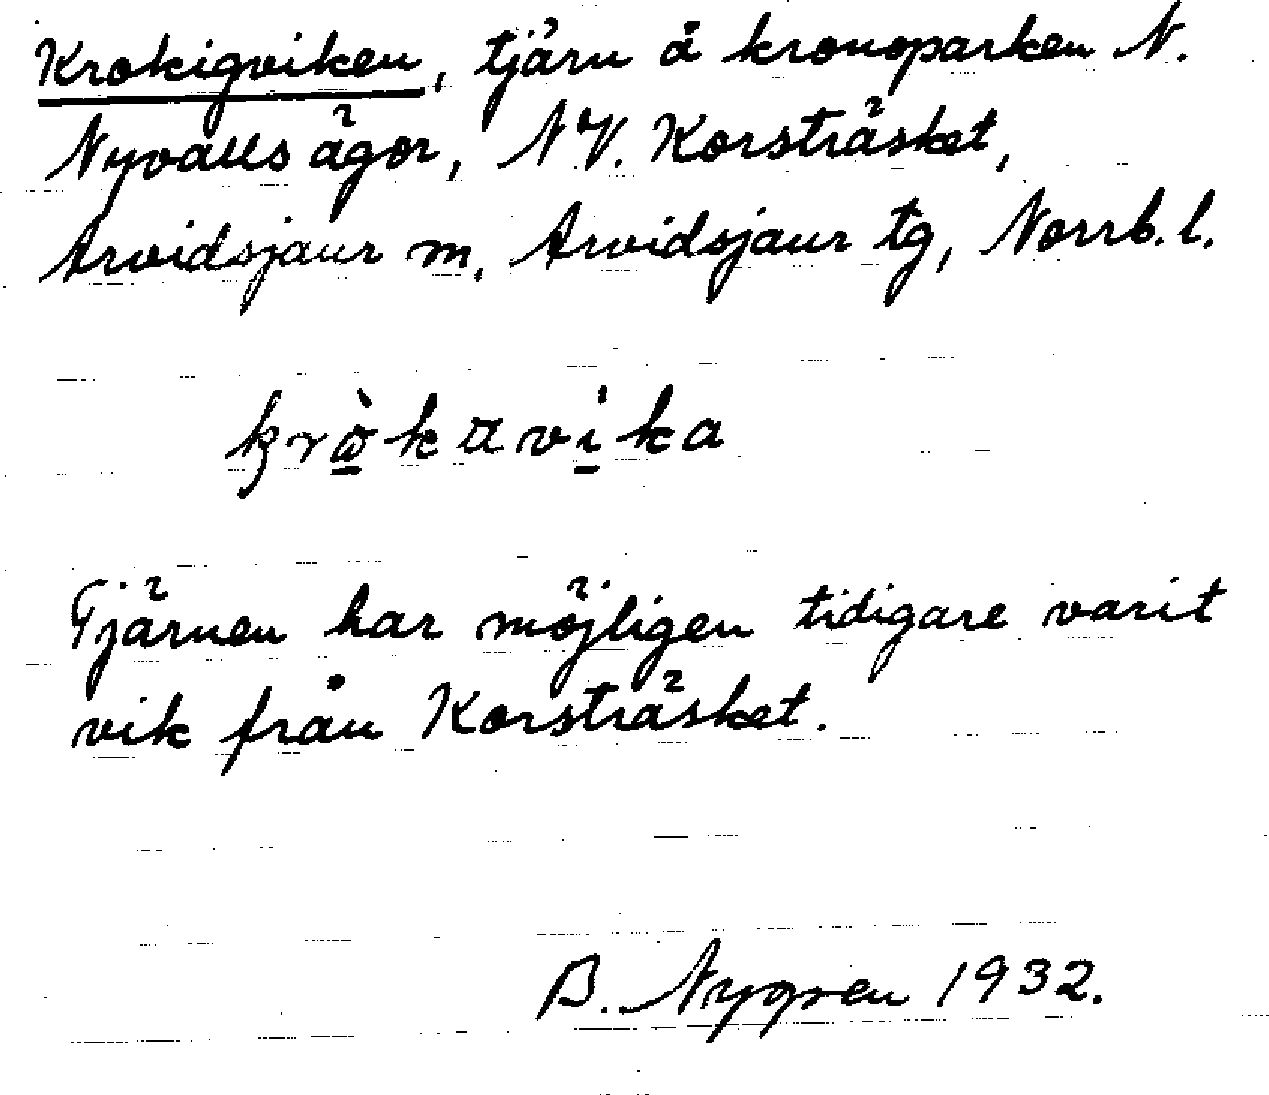 Krokigviken, tjärn å kronoparken N.
Nyvalls ägor, NV. Korsträsket,
Arvidsjaur m, Arvidsjaur tg, Norrb. l.
krò̱kavi̱ka
Tjärnen har möjligen tidigare varit
vik från Korsträsket.
B. Nygren 1932.